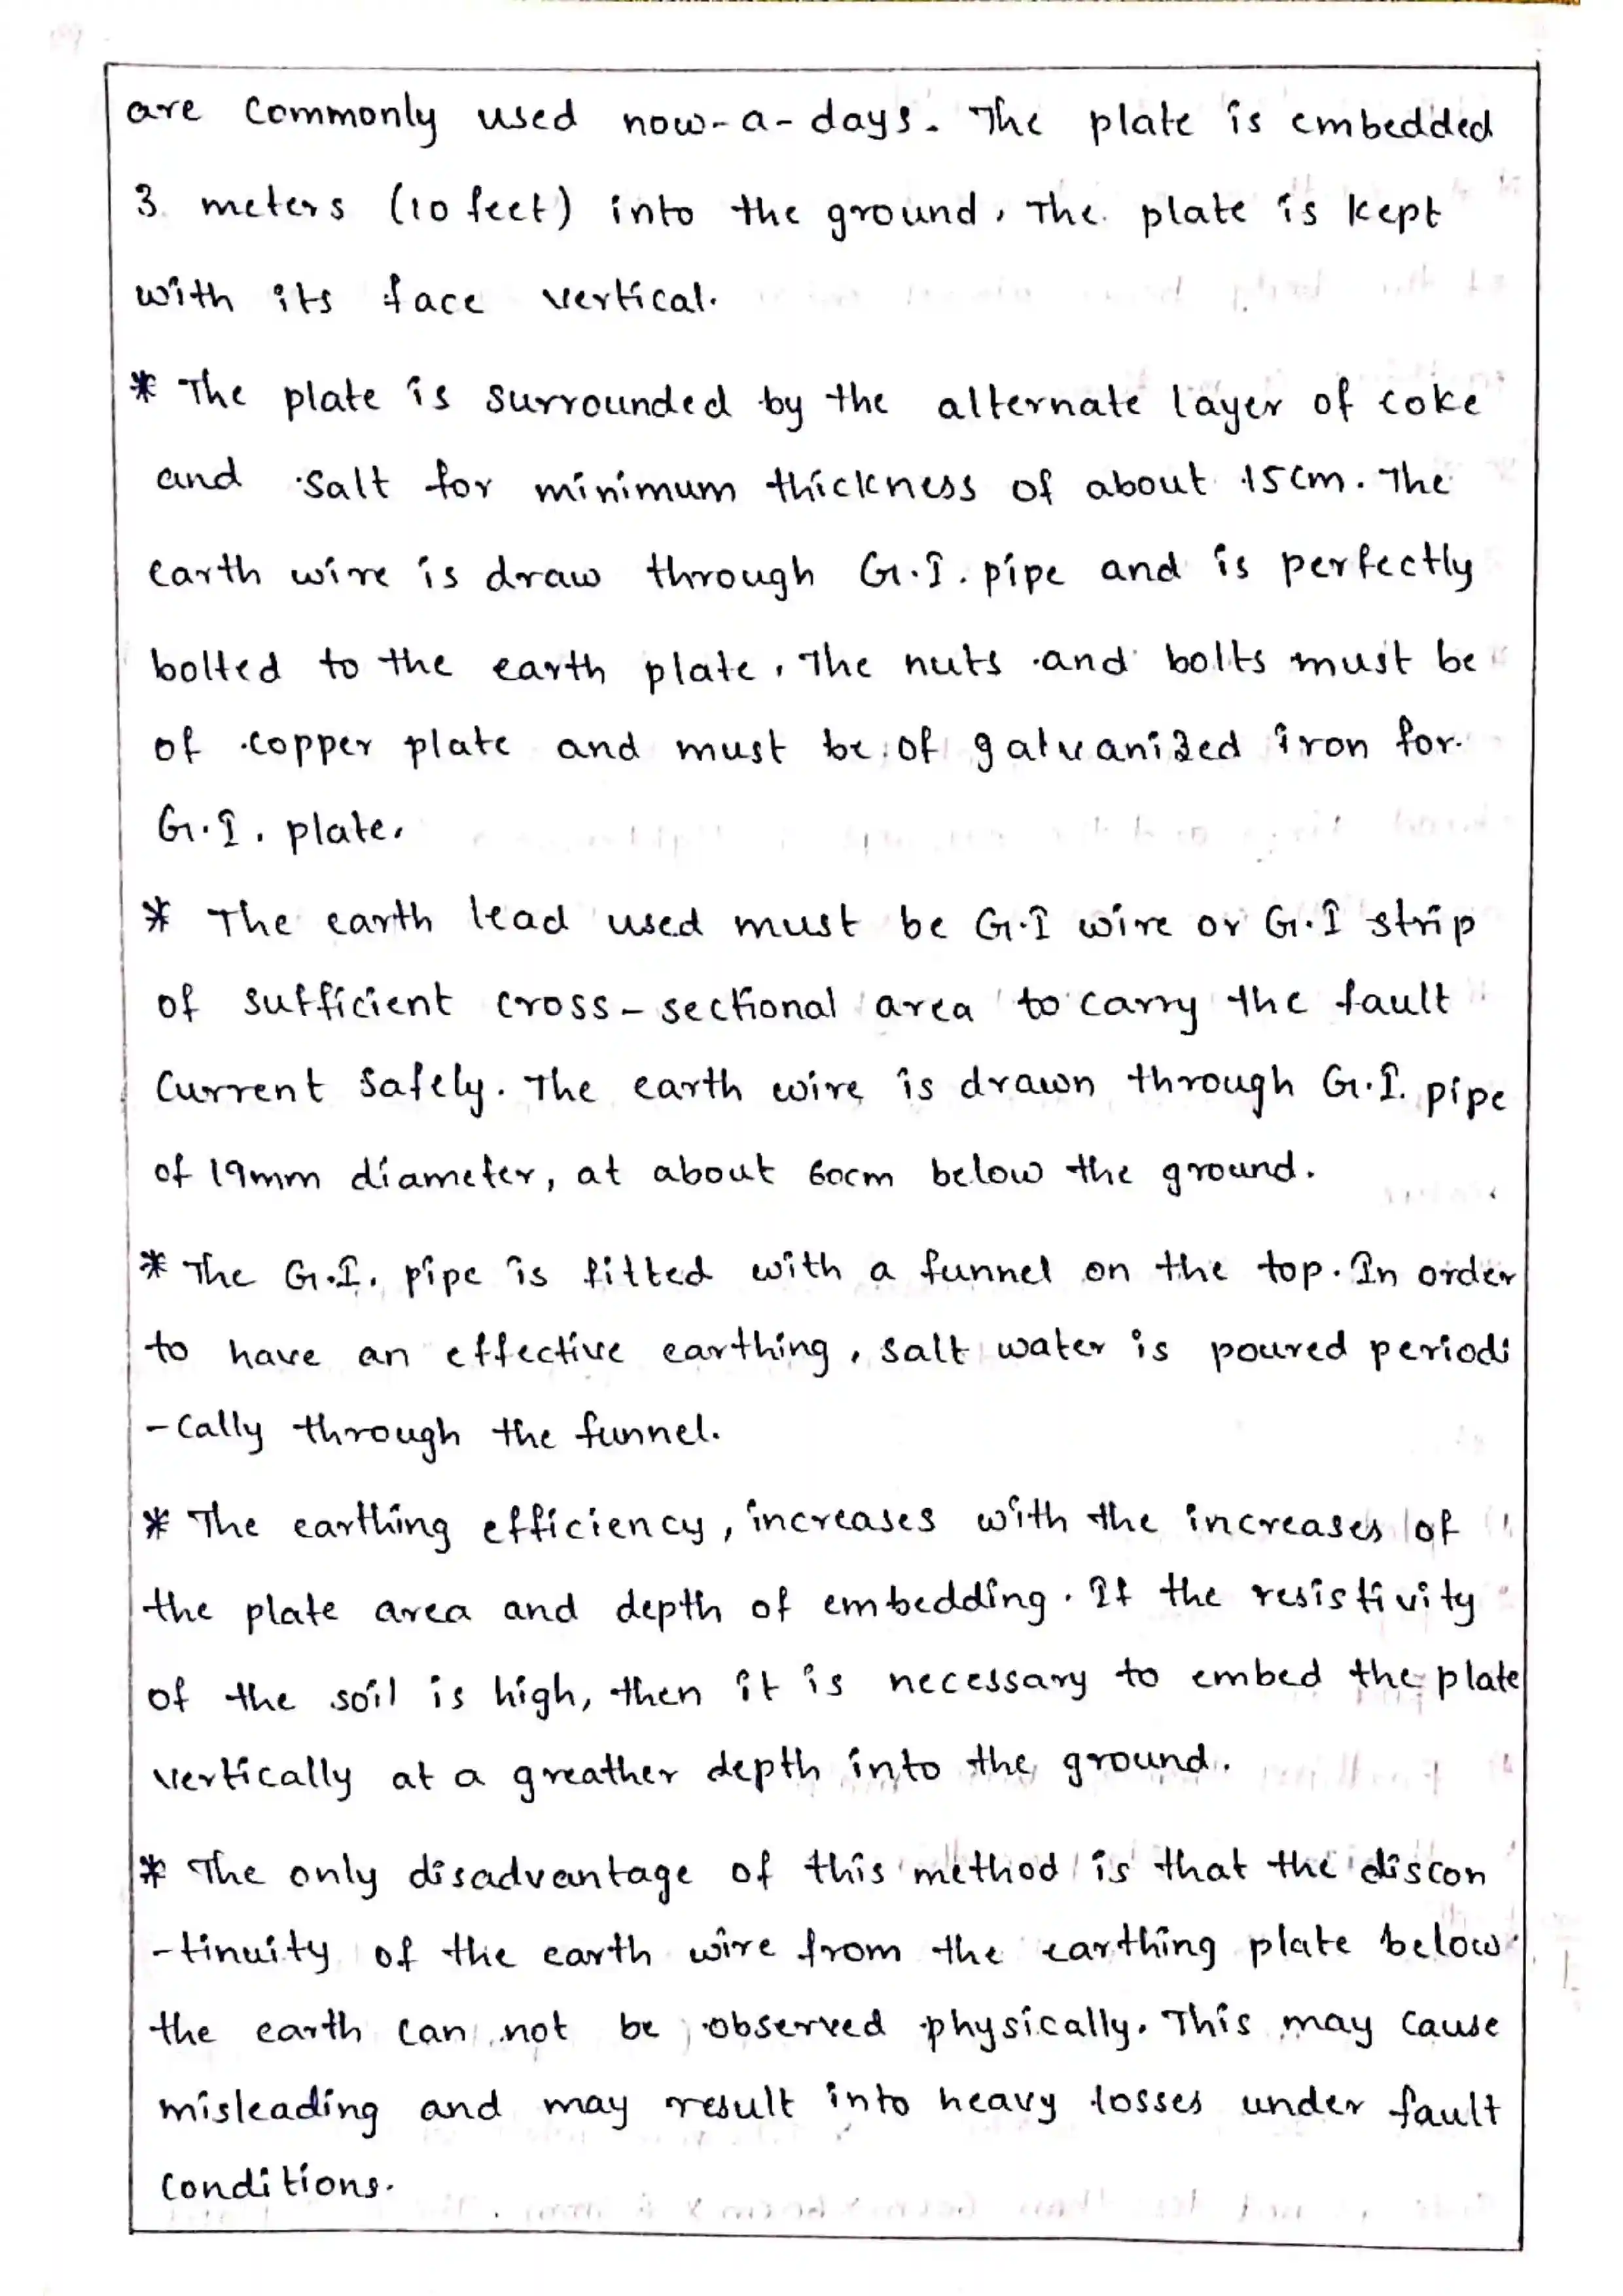 are commonly used now-a-days. The plate is embedded
3 meters (10 feet) into the ground. The plate is kept
with its face vertical.
* The plate is surrounded by the alternate layer of coke
and salt for minimum thickness of about 15cm. The
earth wire is draw through G.I. pipe and is perfectly
bolted to the earth plate. The nuts and bolts must be
of copper plate and must be of galvanized iron for
G.I. plate.
* The earth lead used must be G.I wire or G.I strip
of sufficient cross-sectional area to carry the fault
current safely. The earth wire is drawn through G.I. pipe
of 19mm diameter, at about 60cm below the ground.
* The G.I. pipe is fitted with a funnel on the top. In order
to have an effective earthing, salt water is poured periodi
-cally through the funnel.
* The earthing efficiency, increases with the increases of
the plate area and depth of embedding. If the resistivity
of the soil is high, then it is necessary to embed the plate
vertically at a greather depth into the ground.
* The only disadvantage of this method is that the discon
-tinuity of the earth wire from the earthing plate below
the earth can not be observed physically. This may cause
misleading and may result into heavy losses under fault
conditions.